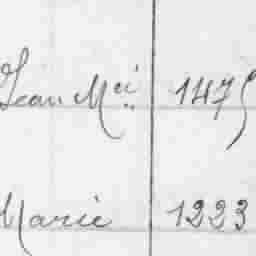 Jean Mie 1475
Marie 1223